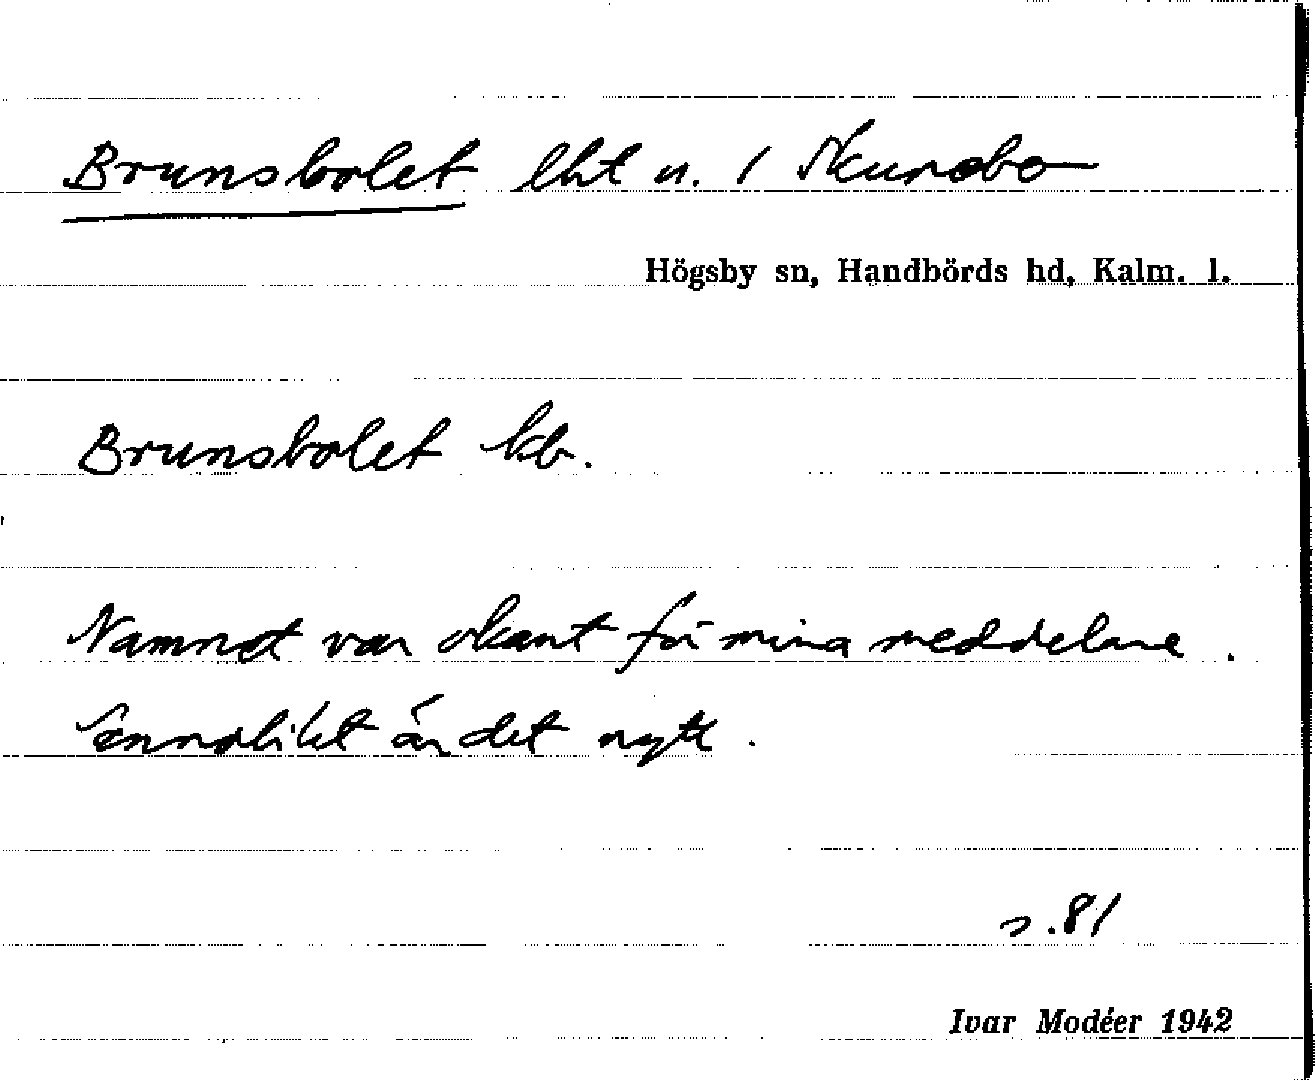 Brunsbolet lht u. 1 Skurebo
Högsby sn, Handbörds hd, Kalm. l.
Brunsbolet kb.
Namnet var okänt för mina meddelare.
Sannolikt är det nytt.
s. 81
Ivar Modéer 1942